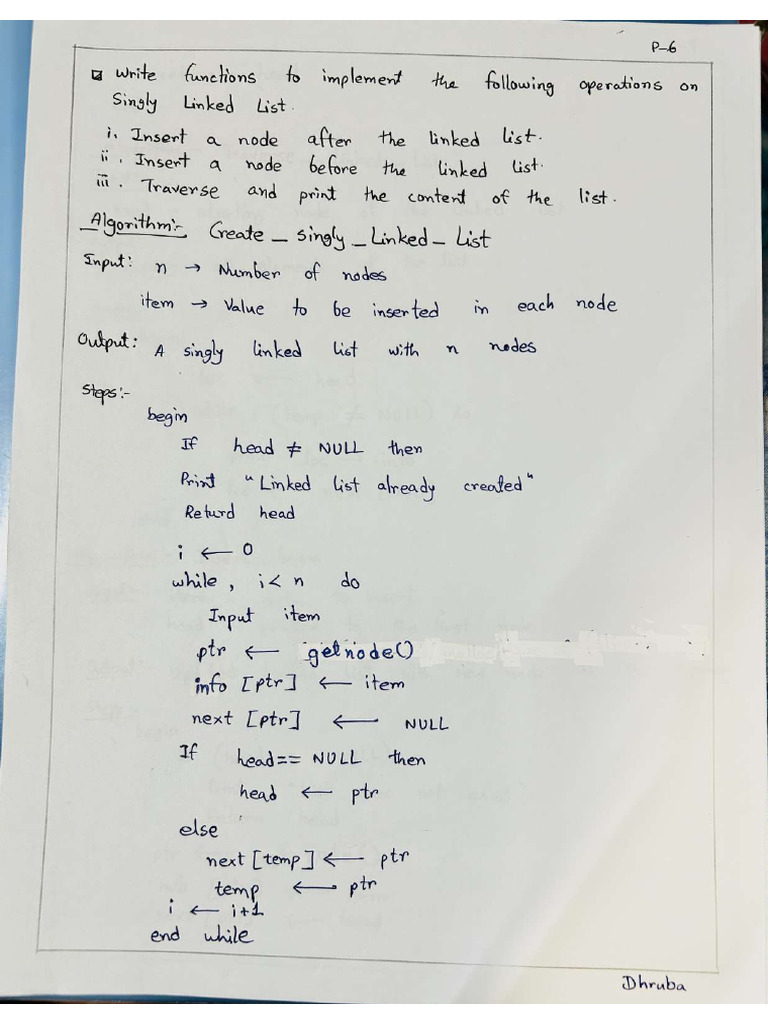 P-6
Write functions to implement the following operations on
Singly Linked List.
i. Insert a node after the linked list.
ii. Insert a node before the linked list.
iii. Traverse and print the content of the list.
Algorithm:- Create_singly_Linked_List
Input: n → Number of nodes
item → Value to be inserted in each node
Output: A singly linked list with n nodes
Steps:-
begin
If head ≠ NULL then
Print "Linked list already created"
Returd head
i ← 0
while, i < n do
Input item
ptr ← getnode()
info [ptr] ← item
next [ptr] ← NULL
If head == NULL then
head ← ptr
else
next [temp] ← ptr
temp ← ptr
i ← i+1
end while
Dhruba